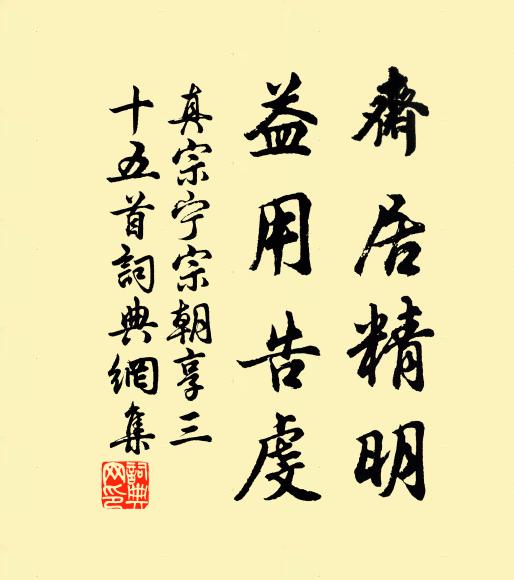 齋居精明
益用告虔
真宗宁宗朝享三
十五首詞典網集
詞典网印